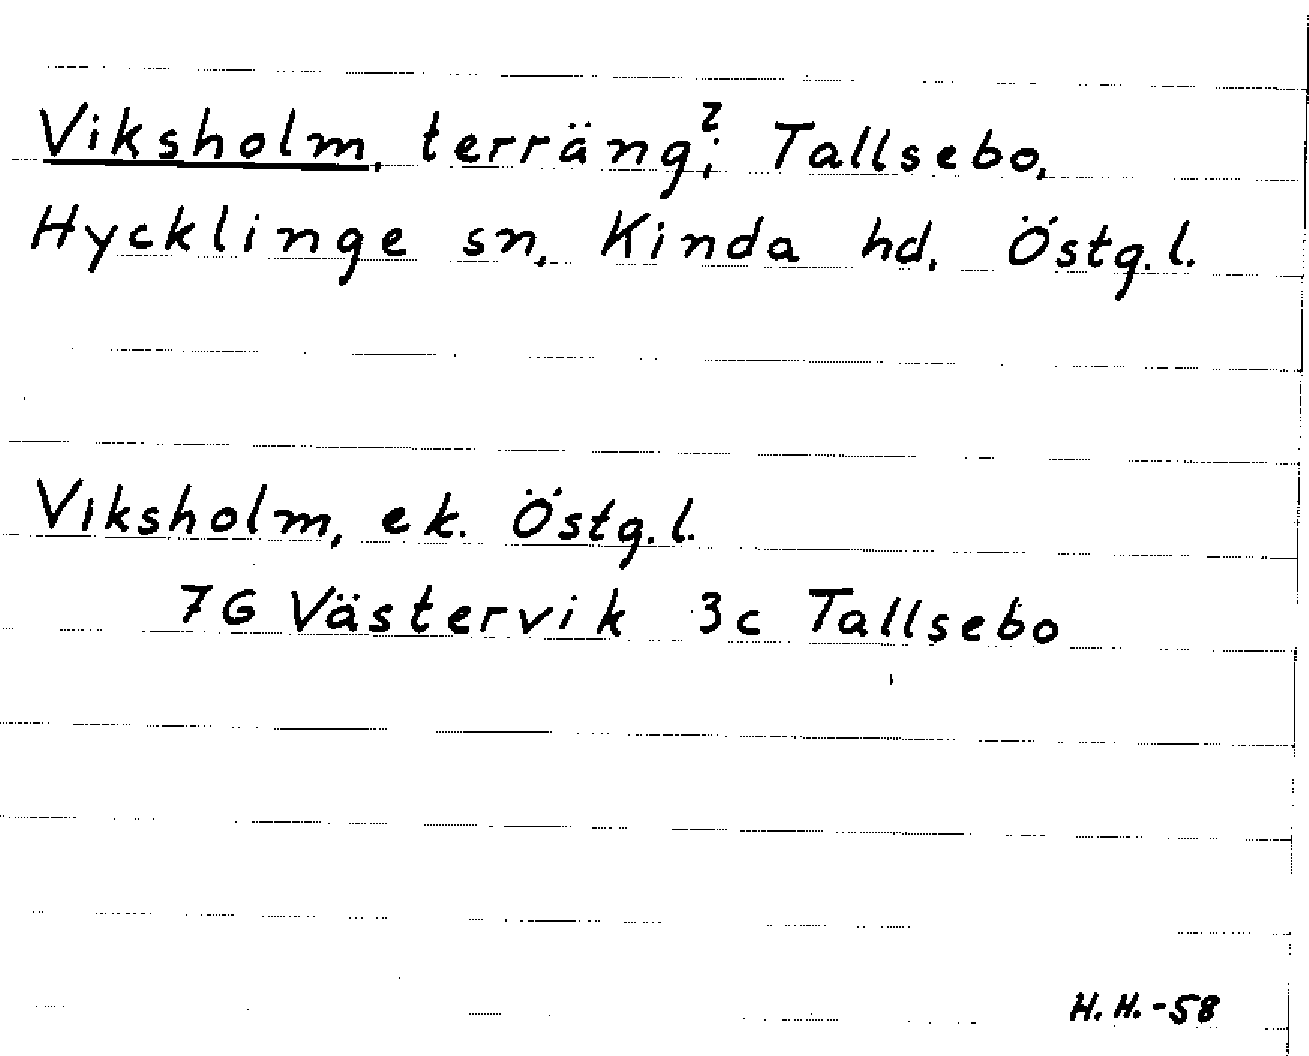 Viksholm, terräng?; Tallsebo,
Hycklinge sn, Kinda hd. Östg. l.
Viksholm, ek. Östg. l.
7G Västervik 3c Tallsebo
H. H. -58